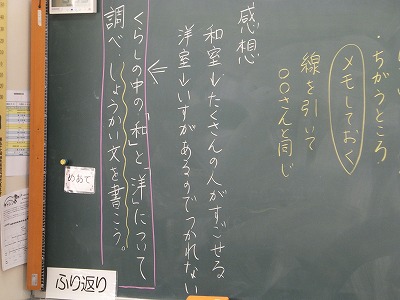 ちがうところ
メモしておく
線を引いて
○○さんと同じ
感想
和室はたくさんの人がすごせる
洋室はいすがあるのでつかれない
くらしの中の「和」と「洋」について
調べ、しょうかい文を書こう。
めあて
ふり返り